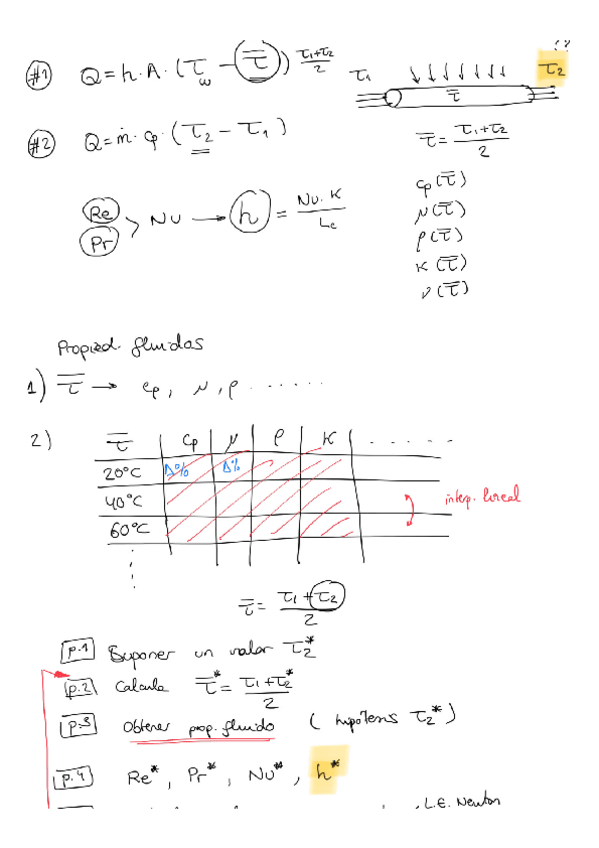 #1 Q = h · A · (τw − τ̿) τ1+τ2/2
τ1 τ2
τ̿
#2 Q = ṁ · cp · (τ2 − τ1)
τ̿ = τ1+τ2/2
Re
Pr > Nu → h = Nu · K/Lc
cp(τ̿)
μ(τ̿)
ρ(τ̿)
K(τ̿)
ν(τ̿)
Propied. fluidos
1) τ̿ → cp, μ, ρ ......
2) τ̿ cp μ ρ K ......
20°C Δ% Δ%
40°C
interp. lineal
60°C
τ̿ = τ1+τ2/2
p.1 Suponer un valor τ2*
p.2 Calcula τ̿* = τ1+τ2*/2
p.3 Obtener prop. fluido (hipótesis τ2*)
p.4 Re*, Pr*, Nu*, h*
L.E. Newton